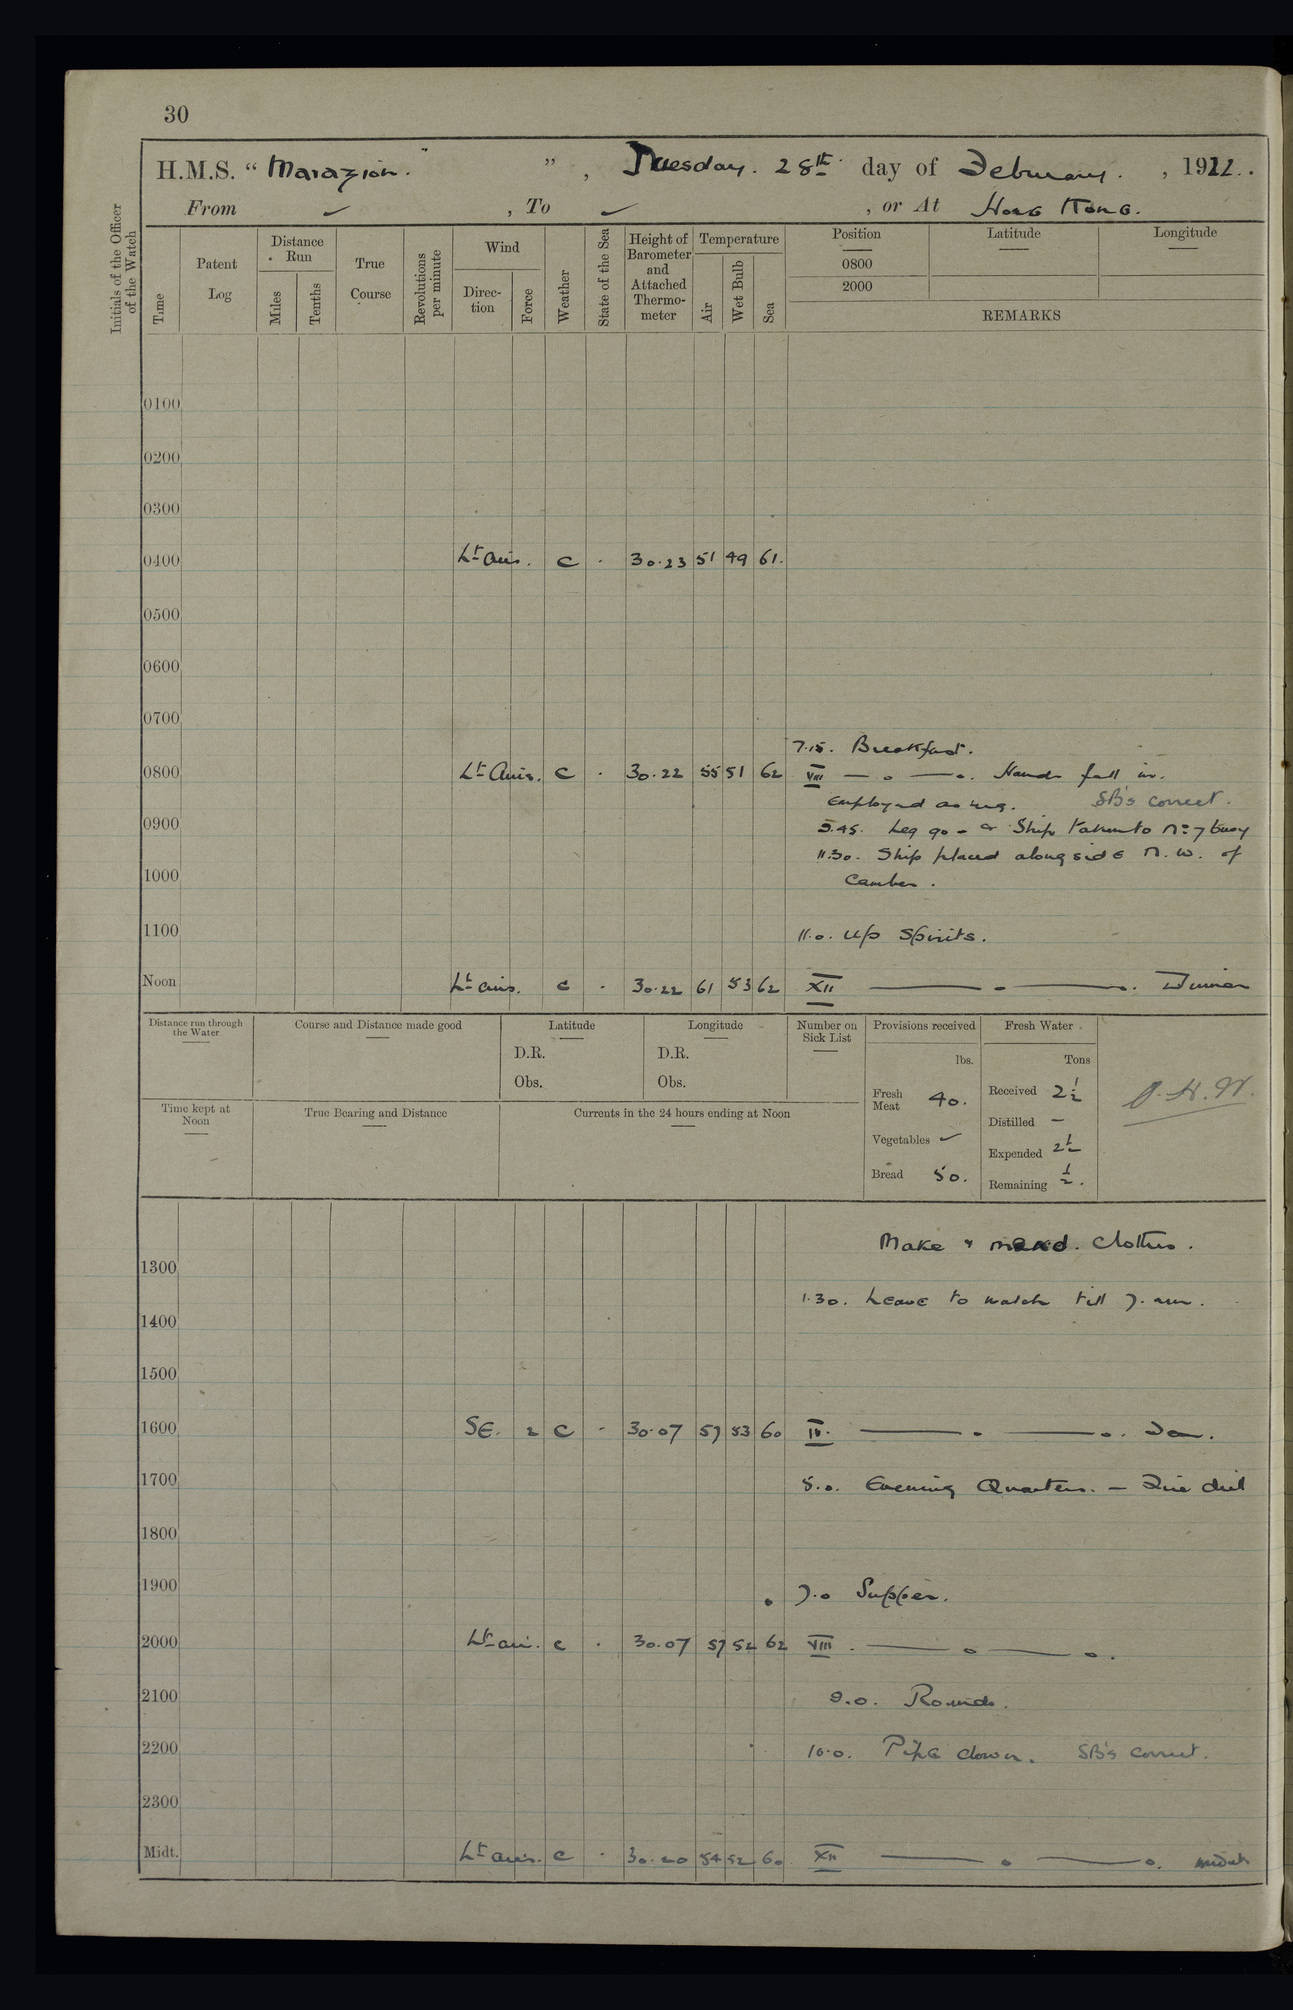 30
H.M.S. “ Marazion. ” , Tuesday. 28th day of February. , 1922.
From ✓ , To ✓ , or At Hong Kong.
Initials of the Officer of the Watch
Time
Patent Log
Distance Run
Miles
Tenths
True Course
Revolutions per minute
Wind
Direction
Force
Weather
State of the Sea
Height of Barometer and Attached Thermometer
Temperature
Air
Wet Bulb
Sea
Position
Latitude
Longitude
0800
2000
REMARKS
0100
0200
0300
0400 Lt airs. C . 30.23 51 49 61.
0500
0600
0700
7.15. Breakfast.
0800 Lt Airs. C . 30.22 55 51 62 VIII — o — o. Hands fall in.
Employed as req. SB's correct.
0900
9.45. Leg go - & Ship taken to No 7 buoy
11.30. Ship placed alongside N.W. of
1000
Camber.
1100 11.0. Up Spirits.
Noon Lt airs. C . 30.22 61 53 62 XII — o — . Dinner
Distance run through the Water
Course and Distance made good
Latitude
D.R.
Obs.
Longitude
D.R.
Obs.
Number on Sick List
Provisions received
lbs.
Fresh Meat 40.
Vegetables ✓
Bread 50.
Fresh Water
Tons
Received 2 1/2
Distilled —
Expended 2 1/2
Remaining 1/2.
Time kept at Noon
True Bearing and Distance
Currents in the 24 hours ending at Noon
Make & mend. Clothes.
1300
1.30. Leave to watch till 7. am.
1400
1500
1600 SE. 2 C . 30.07 57 53 60 IV. — o — o.
1700 5.0. Evening Quarters. — Fire drill
1800
1900 7.0 Supper.
2000 Lt airs. C . 30.07 57 52 62 VIII . — o — o.
2100 9.0. Rounds.
2200 10.0. Pipe down. SB's correct.
2300
Midt. Lt airs. C . 30.20 54 52 60 XII — o — o. midt